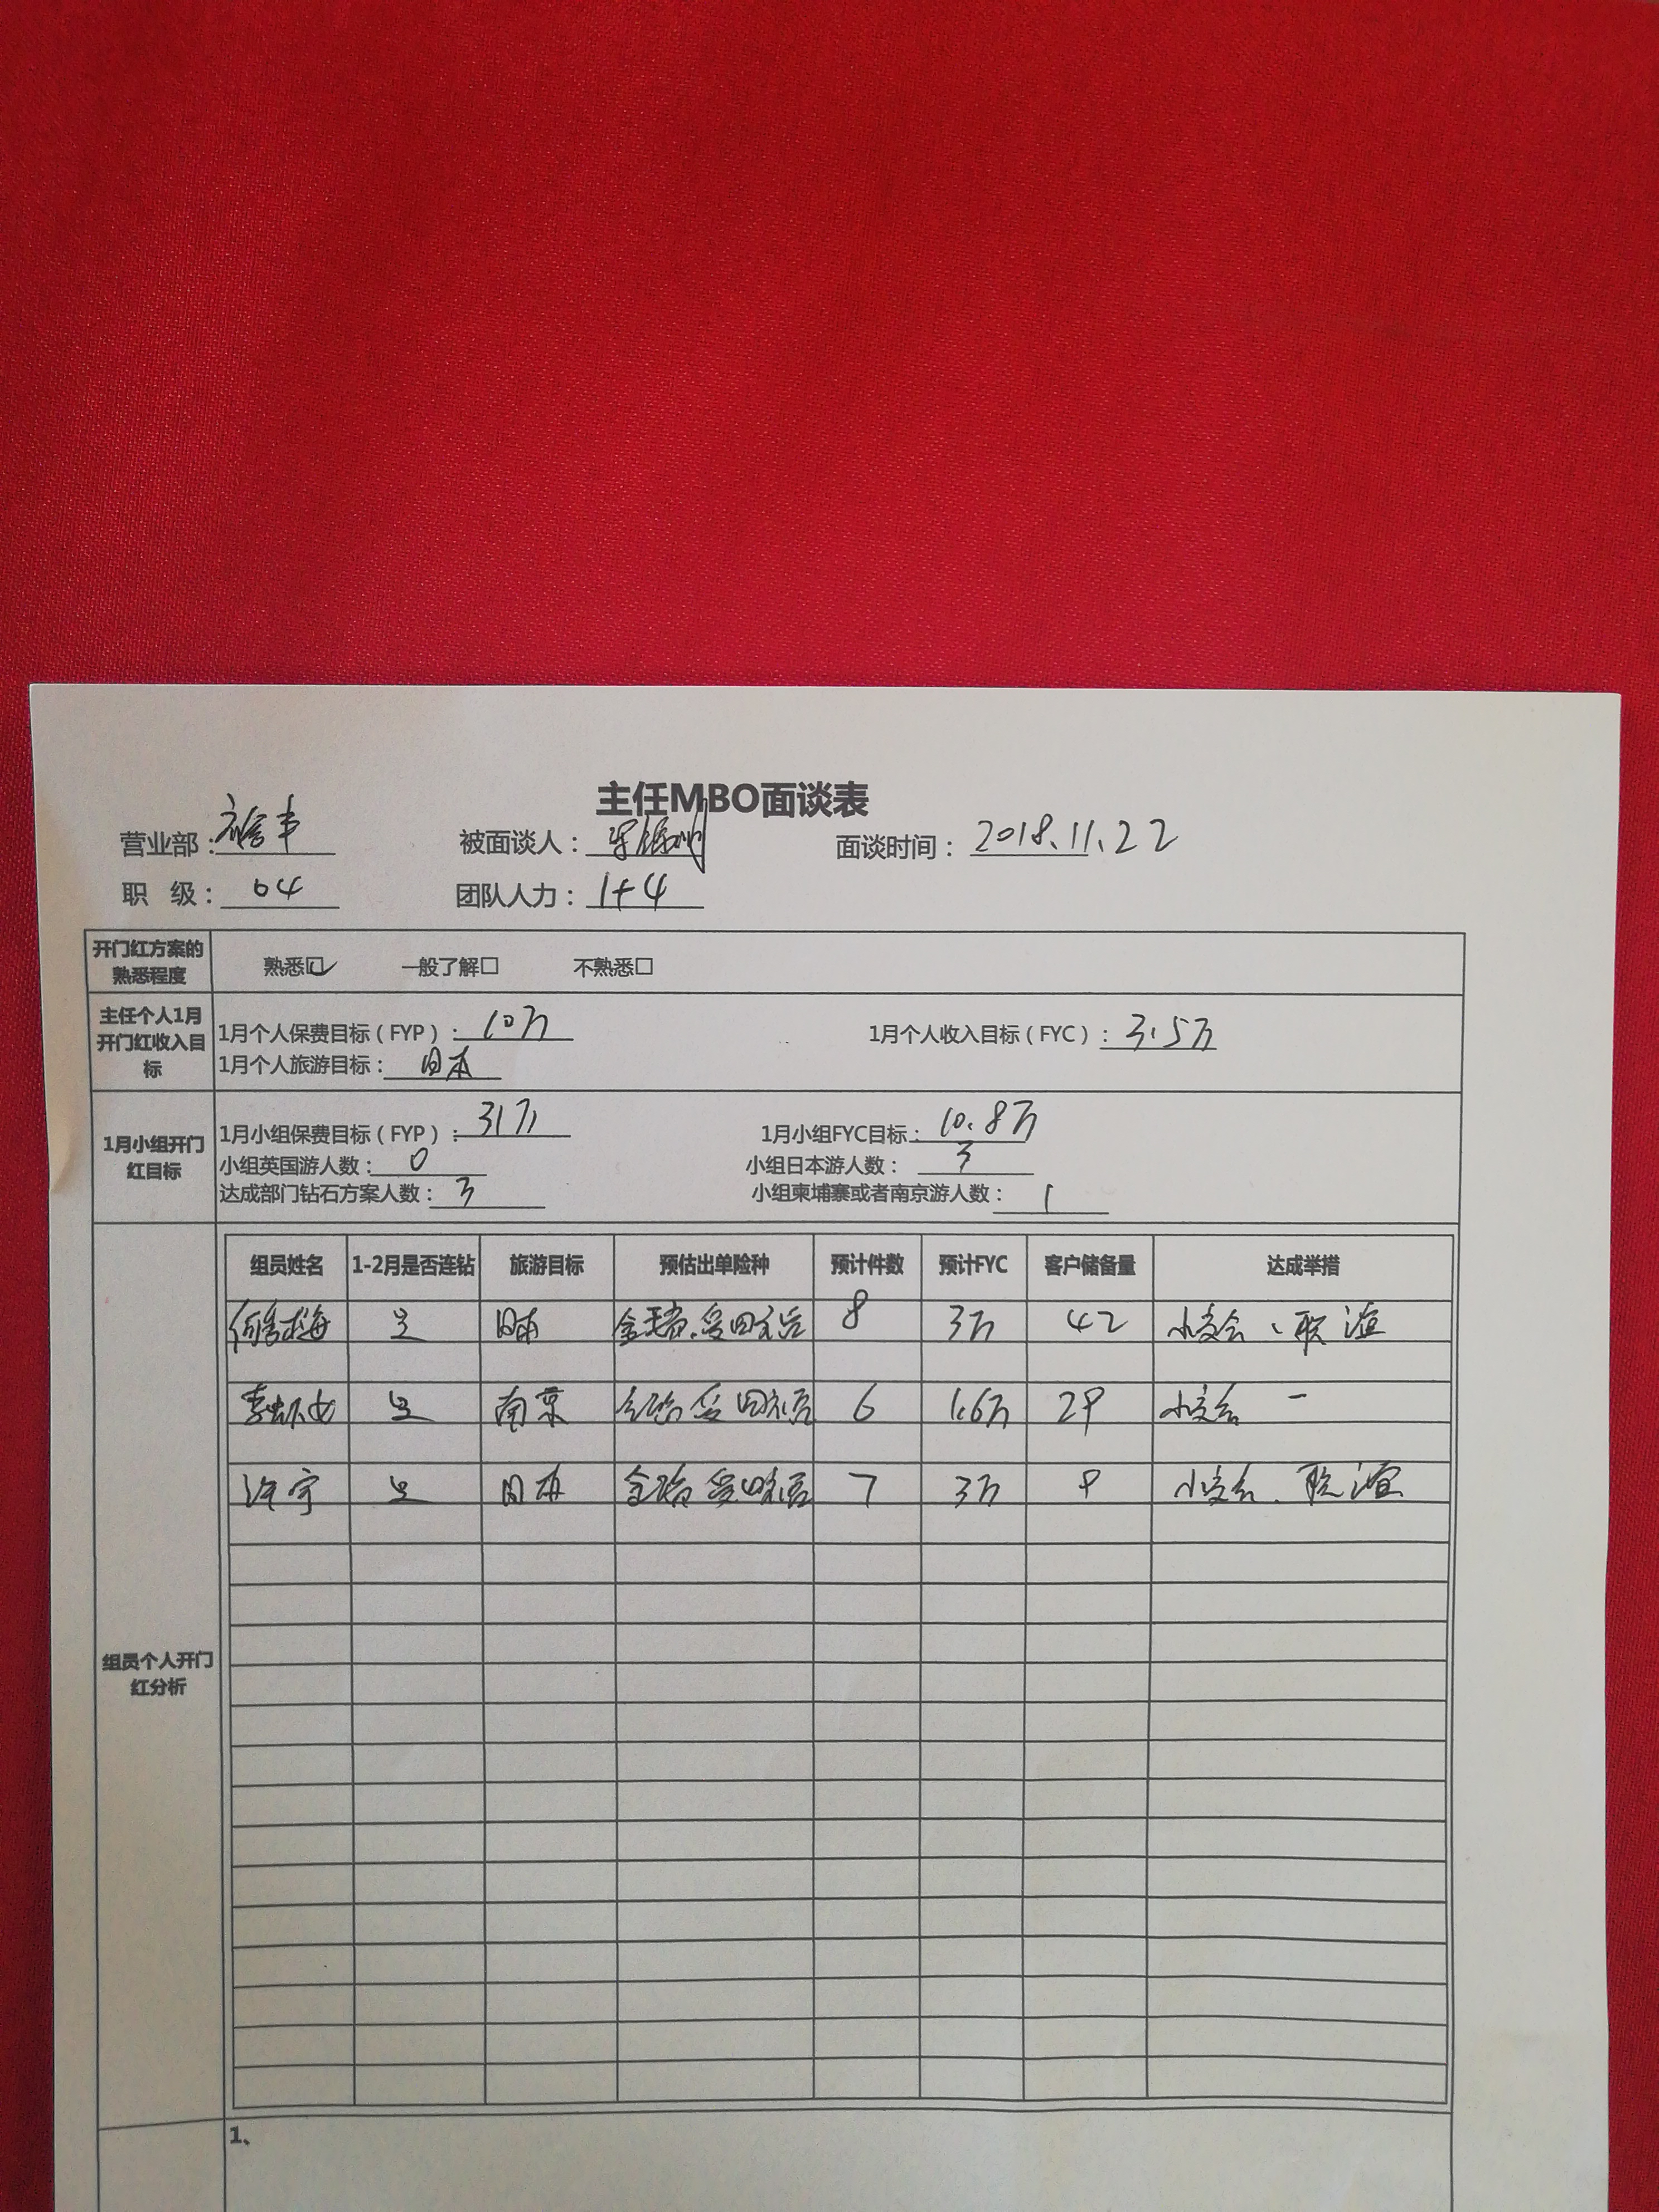 主任MBO面谈表
营业部： 被面谈人： 面谈时间：2018.11.22
职 级：04 团队人力：1+4
开门红方案的熟悉程度 熟悉☑ 一般了解□ 不熟悉□
主任个人1月开门红收入目标
1月个人保费目标（FYP）：10万 1月个人收入目标（FYC）：3.5万
1月个人旅游目标：日本
1月小组开门红目标
1月小组保费目标（FYP）：31万 1月小组FYC目标：10.8万
小组英国游人数：0 小组日本游人数：3
达成部门钻石方案人数：3 小组柬埔寨或者南京游人数：1
组员个人开门红分析
组员姓名 1-2月是否连钻 旅游目标 预估出单险种 预计件数 预计FYC 客户储备量 达成举措
是 日本 8 3万 42 小交会、联谊
是 南京 6 1.6万 29 小交会
许宁 是 日本 7 3万 9 小交会、联谊
1、